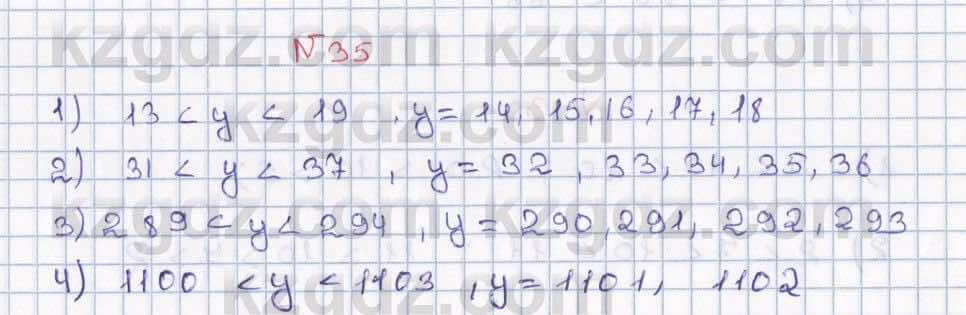 №35
1) 13 < y < 19, y = 14, 15, 16, 17, 18
2) 31 < y < 37, y = 32, 33, 34, 35, 36
3) 289 < y < 294, y = 290, 291, 292, 293
4) 1100 < y < 1103, y = 1101, 1102
kzgdz.com kzgdz.com